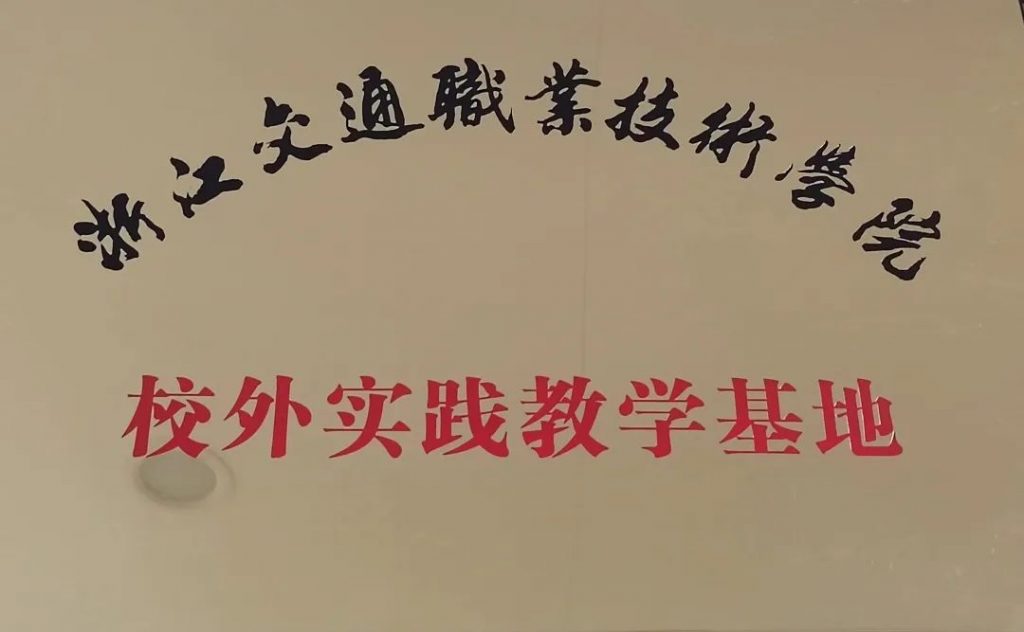 浙江交通職業技術學院
校外实践教学基地